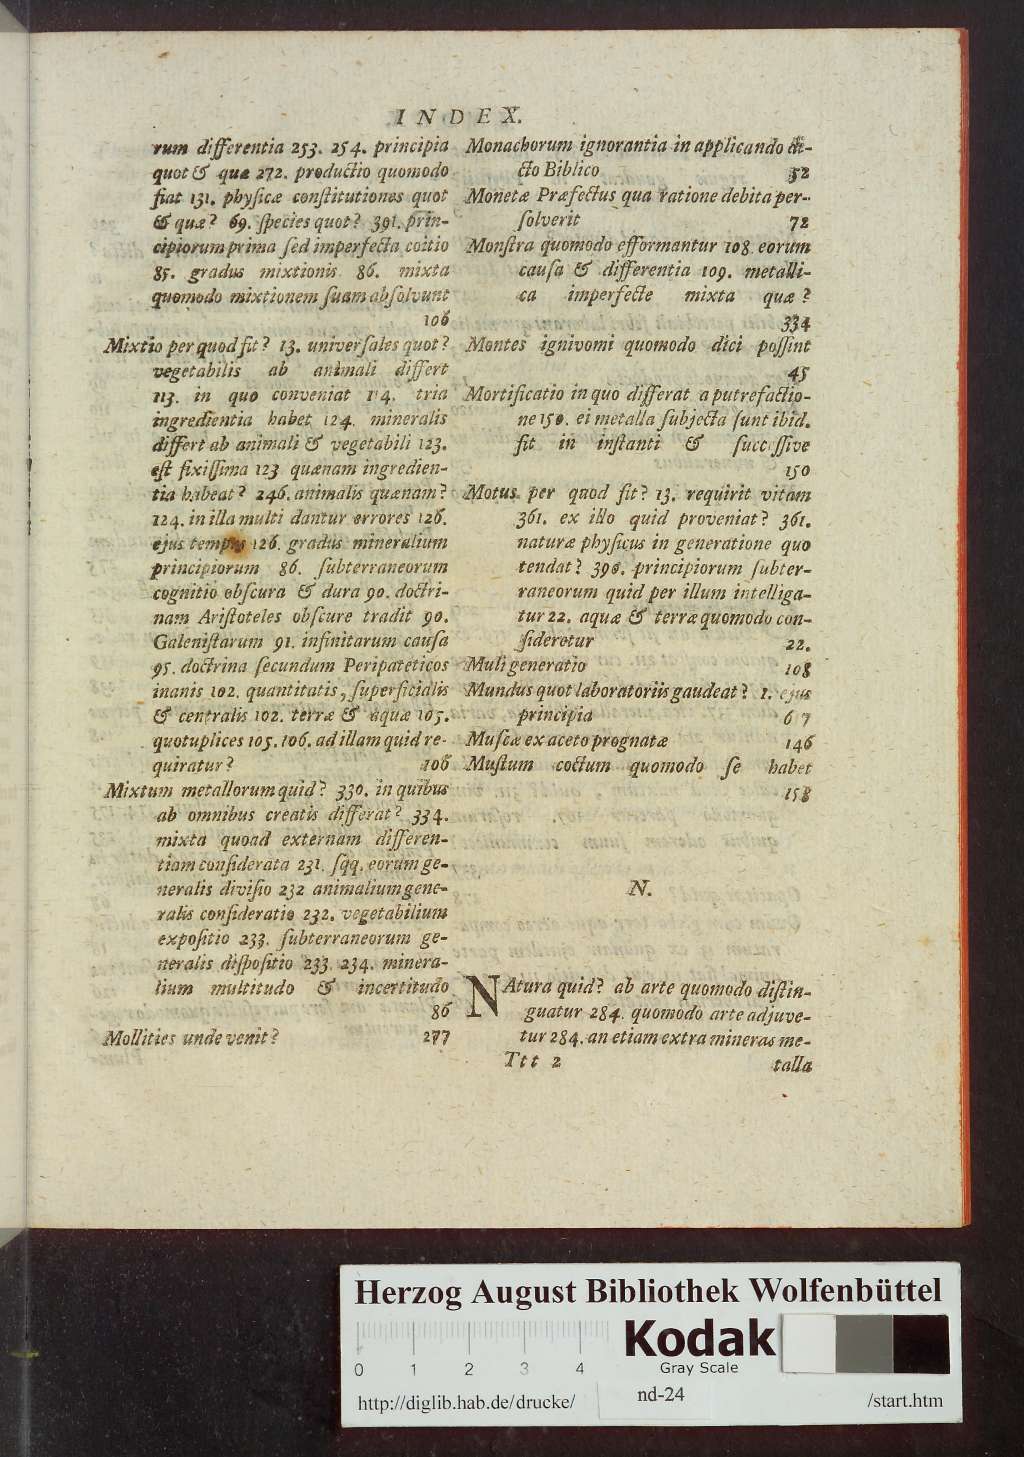 INDEX.
rum differentia 253. 254. principia
quot & quæ 272. productio quomodo
fiat 131. phyſicæ conſtitutiones quot
& quæ? 69. ſpecies quot? 391. prin-
cipiorum prima ſed imperfecta coitio
85. gradus mixtionis 86. mixta
quomodo mixtionem ſuam abſolvunt
106
Mixtio per quod fit? 13. univerſales quot?
vegetabilis ab animali differt
113. in quo conveniat 114. tria
ingredientia habet 124. mineralis
differt ab animali & vegetabili 123.
eſt fixiſſima 123 quænam ingredien-
tia habeat? 246. animalis quænam?
124. in illa multi dantur errores 126.
ejus tempus 126. gradus mineralium
principiorum 86. ſubterraneorum
cognitio obſcura & dura 90. doctri-
nam Ariſtoteles obſcure tradit 90.
Galeniſtarum 91. infinitarum cauſa
95. doctrina ſecundum Peripateticos
inanis 102. quantitatis, ſuperficialis
& centralis 102. terræ & aquæ 105.
quotuplices 105. 106. ad illam quid re-
quiratur? 106
Mixtum metallorum quid? 330. in quibus
ab omnibus creatis differat? 334.
mixta quoad externam differen-
tiam conſiderata 231. ſqq. eorum ge-
neralis diviſio 232 animalium gene-
ralis conſideratio 232. vegetabilium
expoſitio 233. ſubterraneorum ge-
neralis diſpoſitio 233. 234. minera-
lium multitudo & incertitudo
86
Mollities unde venit? 277
Monachorum ignorantia in applicando di-
cto Biblico 52
Monetæ Præfectus qua ratione debita per-
ſolverit 72
Monſtra quomodo efformantur 108. eorum
cauſa & differentia 109. metalli-
ca imperfecte mixta quæ?
334
Montes ignivomi quomodo dici poſſint
45
Mortificatio in quo differat a putrefactio-
ne 150. ei metalla ſubjecta ſunt ibid.
fit in inſtanti & ſucceſſive
150
Motus per quod fit? 13. requirit vitam
361. ex illo quid proveniat? 361.
naturæ phyſicus in generatione quo
tendat? 390. principiorum ſubter-
raneorum quid per illum intelliga-
tur 22. aquæ & terræ quomodo con-
ſideretur 22.
Muli generatio 108
Mundus quot laboratoriis gaudeat? 1. ejus
principia 6 7
Muſcæ ex aceto prognatæ 146
Muſtum coctum quomodo ſe habet
158
N.
NAtura quid? ab arte quomodo diſtin-
guatur 284. quomodo arte adjuve-
tur 284. an etiam extra mineras me-
Ttt 2 talla
Herzog August Bibliothek Wolfenbüttel
Kodak
Gray Scale
0 1 2 3 4
http://diglib.hab.de/drucke/ nd-24 /start.htm